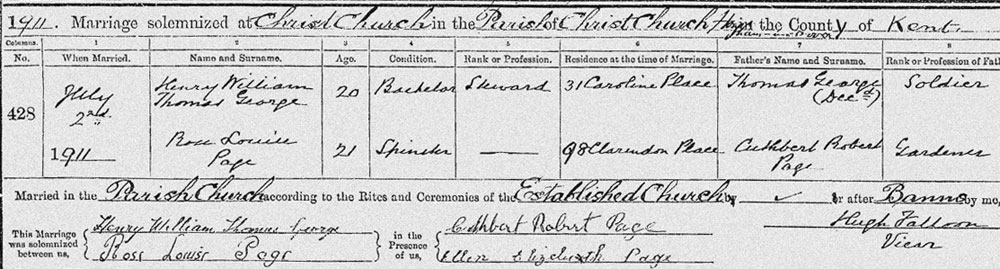 1911. Marriage solemnized at Christ Church in the Parish of Christ Church in the County of Kent.
Columns. 1 2 3 4 5 6 7 8
No. When Married. Name and Surname. Age. Condition. Rank or Profession. Residence at the time of Marriage. Father's Name and Surname. Rank or Profession of Fat
428 July 2nd. 1911 Henry William Thomas George 20 Bachelor Steward 31 Caroline Place Thomas George (Decd) Soldier
Rose Louise Page 21 Spinster — 98 Clarendon Place Cuthbert Robert Page Gardener
Married in the Parish Church according to the Rites and Ceremonies of the Established Church by ✓ or after Banns by me,
Hugh Falloon
Vicar
This Marriage was solemnized between us, Henry William Thomas George in the Presence of us, Cuthbert Robert Page
Rose Louise Page Ellen Elizabeth Page